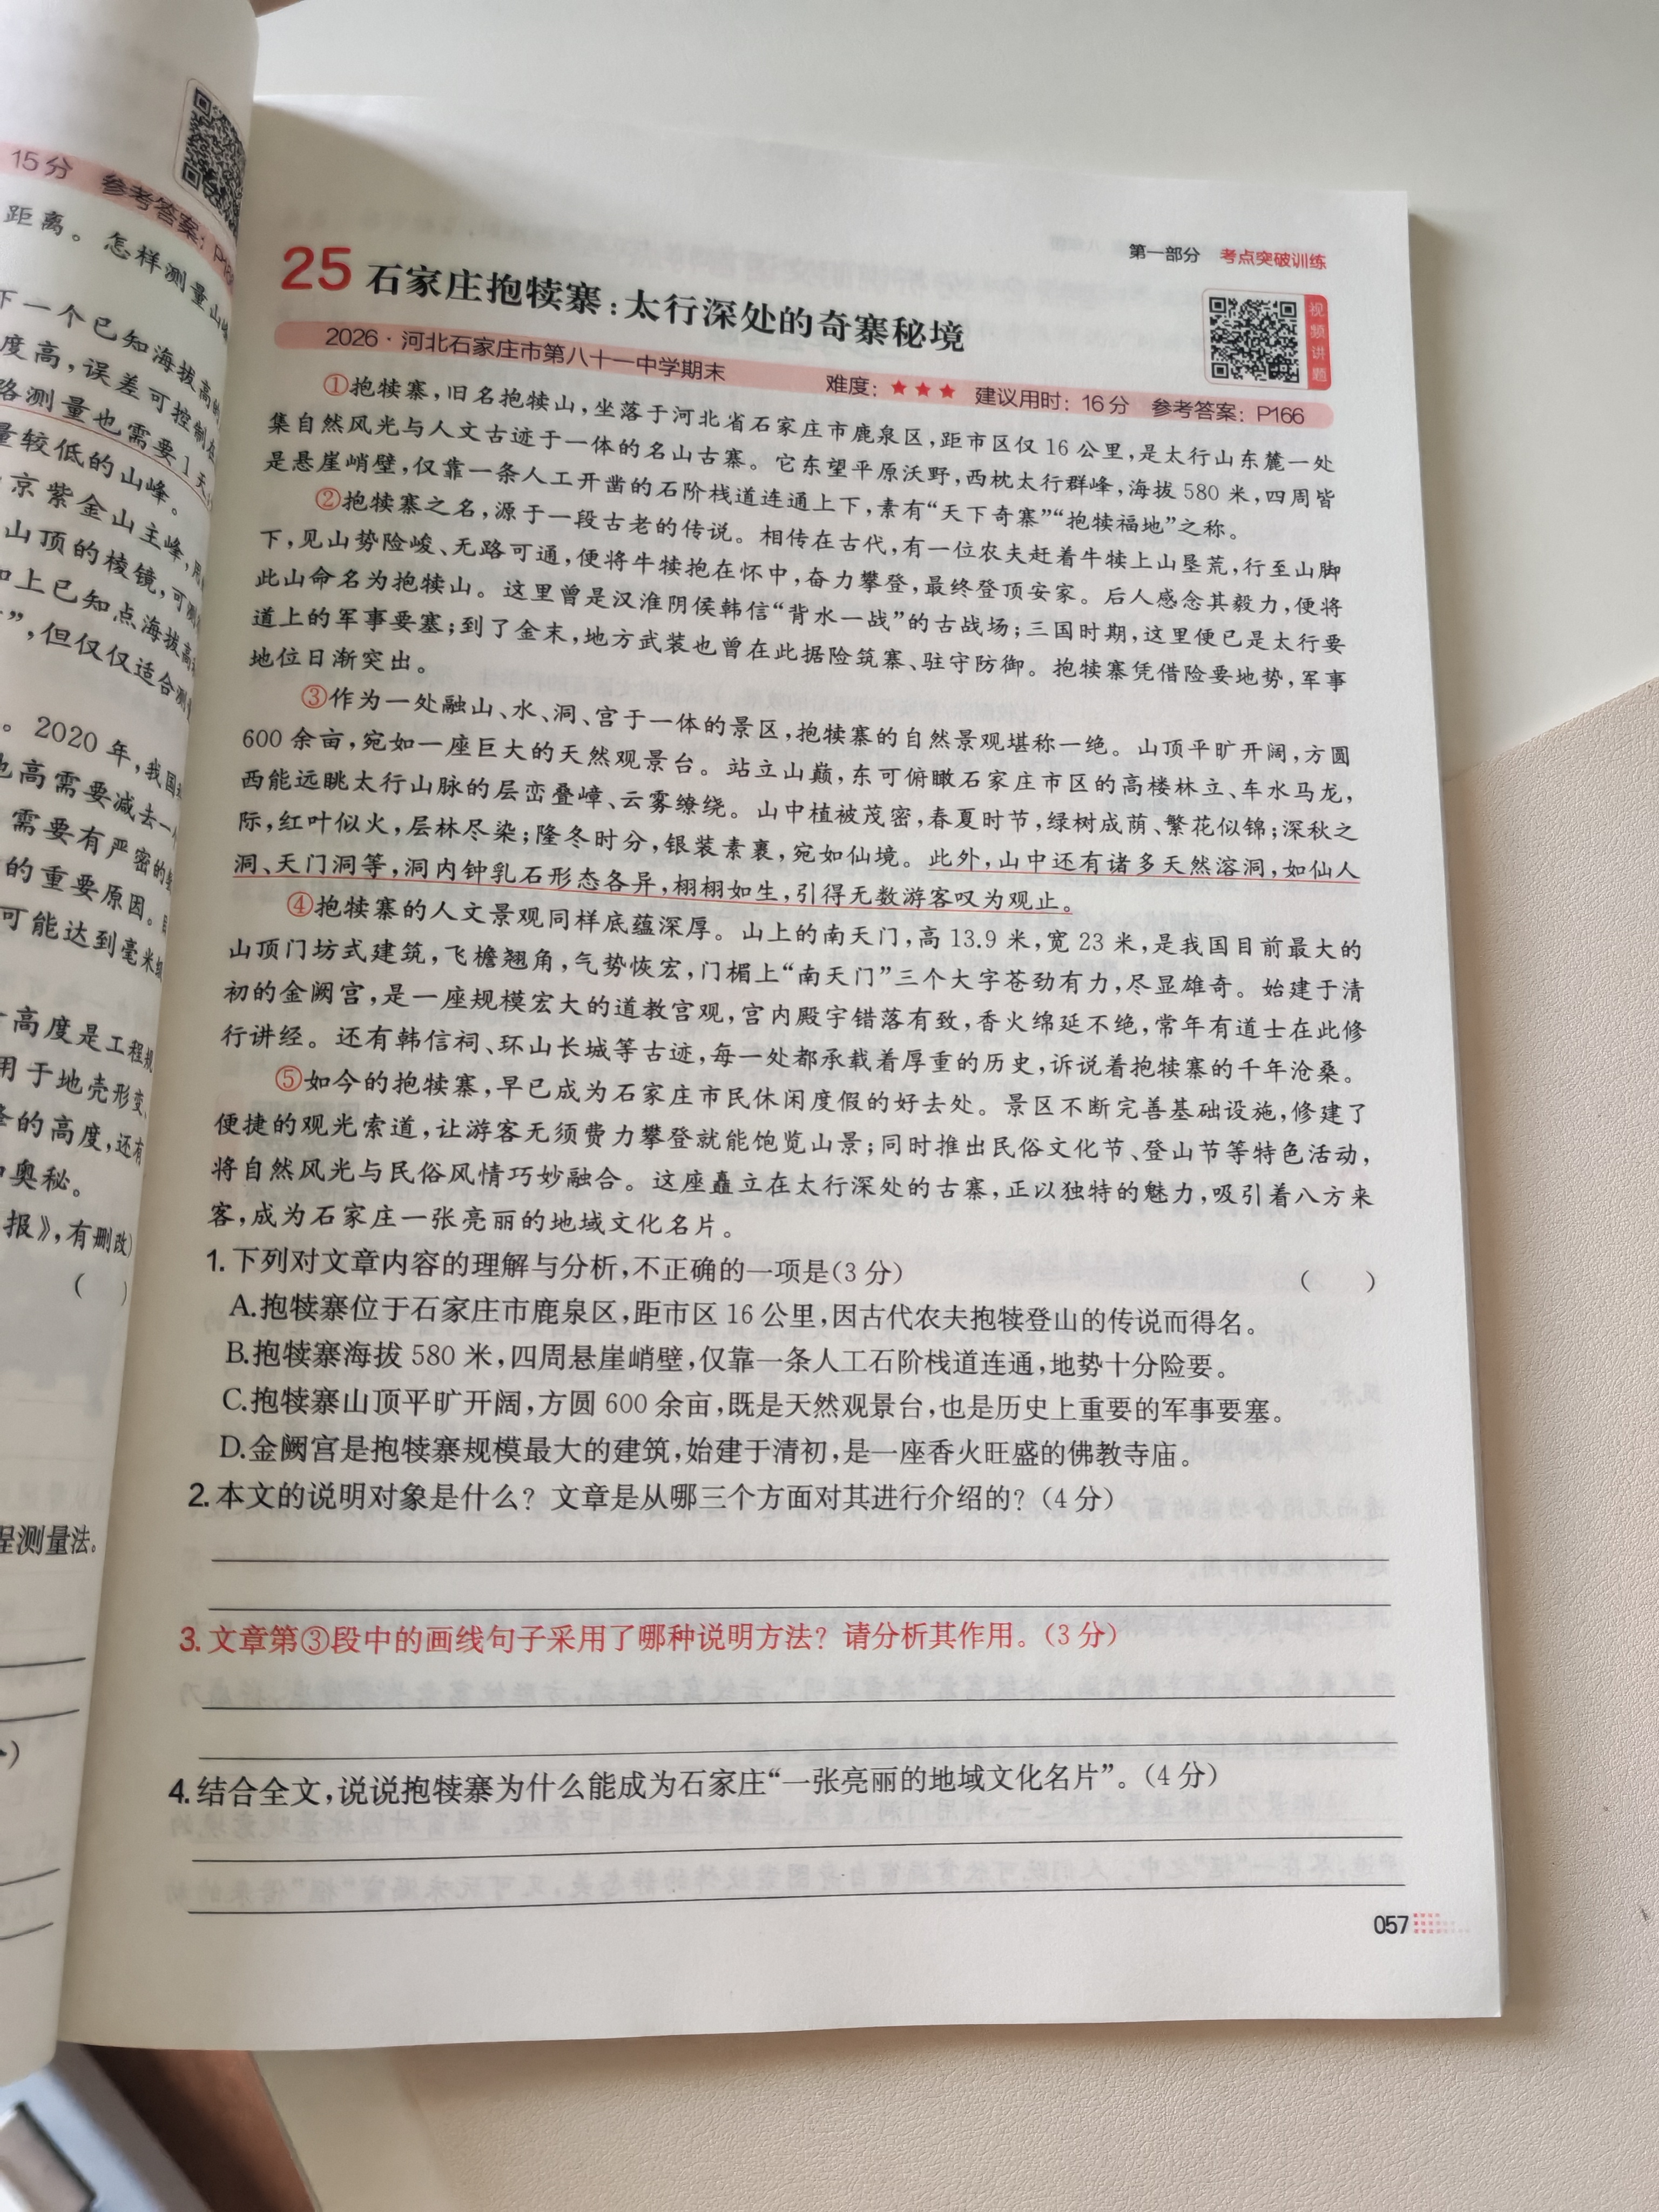 15分 参考答案：P16
距离。怎样测量山峰
下一个已知海拔高的
度高，误差可控制在
路测量也需要1天
量较低的山峰。
京紫金山主峰，用
山顶的棱镜，可测
如上已知点海拔高
”，但仅仅适合测
。2020年，我国
也高需要减去一
需要有严密的
的重要原因。
可能达到毫米级
高度是工程规
用于地壳形变
峰的高度，还有
和奥秘。
报》，有删改）
（ ）
程测量法。
第一部分 考点突破训练
25 石家庄抱犊寨：太行深处的奇寨秘境
视频讲题
2026·河北石家庄市第八十一中学期末 难度：★★★ 建议用时：16分 参考答案：P166
①抱犊寨，旧名抱犊山，坐落于河北省石家庄市鹿泉区，距市区仅16公里，是太行山东麓一处
集自然风光与人文古迹于一体的名山古寨。它东望平原沃野，西枕太行群峰，海拔580米，四周皆
是悬崖峭壁，仅靠一条人工开凿的石阶栈道连通上下，素有“天下奇寨”“抱犊福地”之称。
②抱犊寨之名，源于一段古老的传说。相传在古代，有一位农夫赶着牛犊上山垦荒，行至山脚
下，见山势险峻、无路可通，便将牛犊抱在怀中，奋力攀登，最终登顶安家。后人感念其毅力，便将
此山命名为抱犊山。这里曾是汉淮阴侯韩信“背水一战”的古战场；三国时期，这里便已是太行要
道上的军事要塞；到了金末，地方武装也曾在此据险筑寨、驻守防御。抱犊寨凭借险要地势，军事
地位日渐突出。
③作为一处融山、水、洞、宫于一体的景区，抱犊寨的自然景观堪称一绝。山顶平旷开阔，方圆
600余亩，宛如一座巨大的天然观景台。站立山巅，东可俯瞰石家庄市区的高楼林立、车水马龙，
西能远眺太行山脉的层峦叠嶂、云雾缭绕。山中植被茂密，春夏时节，绿树成荫、繁花似锦；深秋之
际，红叶似火，层林尽染；隆冬时分，银装素裹，宛如仙境。此外，山中还有诸多天然溶洞，如仙人
洞、天门洞等，洞内钟乳石形态各异，栩栩如生，引得无数游客叹为观止。
④抱犊寨的人文景观同样底蕴深厚。山上的南天门，高13.9米，宽23米，是我国目前最大的
山顶门坊式建筑，飞檐翘角，气势恢宏，门楣上“南天门”三个大字苍劲有力，尽显雄奇。始建于清
初的金阙宫，是一座规模宏大的道教宫观，宫内殿宇错落有致，香火绵延不绝，常年有道士在此修
行讲经。还有韩信祠、环山长城等古迹，每一处都承载着厚重的历史，诉说着抱犊寨的千年沧桑。
⑤如今的抱犊寨，早已成为石家庄市民休闲度假的好去处。景区不断完善基础设施，修建了
便捷的观光索道，让游客无须费力攀登就能饱览山景；同时推出民俗文化节、登山节等特色活动，
将自然风光与民俗风情巧妙融合。这座矗立在太行深处的古寨，正以独特的魅力，吸引着八方来
客，成为石家庄一张亮丽的地域文化名片。
1.下列对文章内容的理解与分析，不正确的一项是（3分） （ ）
A.抱犊寨位于石家庄市鹿泉区，距市区16公里，因古代农夫抱犊登山的传说而得名。
B.抱犊寨海拔580米，四周悬崖峭壁，仅靠一条人工石阶栈道连通，地势十分险要。
C.抱犊寨山顶平旷开阔，方圆600余亩，既是天然观景台，也是历史上重要的军事要塞。
D.金阙宫是抱犊寨规模最大的建筑，始建于清初，是一座香火旺盛的佛教寺庙。
2.本文的说明对象是什么？文章是从哪三个方面对其进行介绍的？（4分）
3.文章第③段中的画线句子采用了哪种说明方法？请分析其作用。（3分）
4.结合全文，说说抱犊寨为什么能成为石家庄“一张亮丽的地域文化名片”。（4分）
057